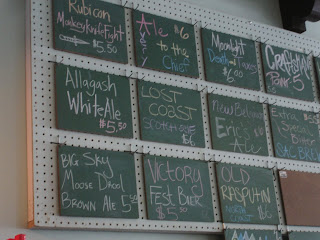 Rubicon
Monkey Knife Fight
$5.50
Ale $6
to the
Chief
Moonlight
Death & Taxes
$6.00
5
Allagash
White Ale
$5.50
LOST
COAST
$6
New Belgium
Eric's
Ale
Extra
BIG SKY
Moose Drool
BROWN ALE 5.50
Victory
Fest Bier
$5.50
OLD
RASPUTIN